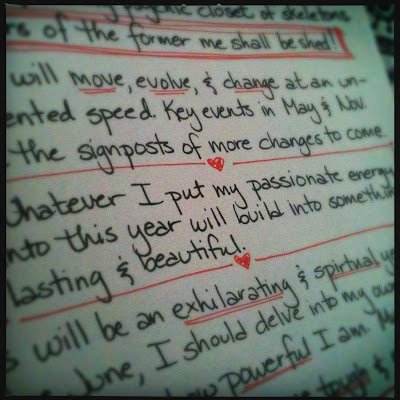 closet of skeletons
of the former me shall be shed!
will move, evolve, & change at an un-
ented speed. Key events in May & Nov.
the signposts of more changes to come.
Whatever I put my passionate energy
into this year will build into somethin
lasting & beautiful.
will be an exhilarating & spiritual y
June, I should delve into my own
how powerful I am. M
tough &